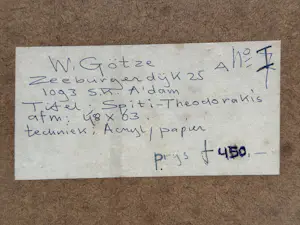 W. Götze
Zeeburgerdijk 25
1093 S.K. A'dam
Titel: Spiti-Theodorakis
afm: 48 x 63.
techniek: Acryl/papier
prijs f 450.—
A No I